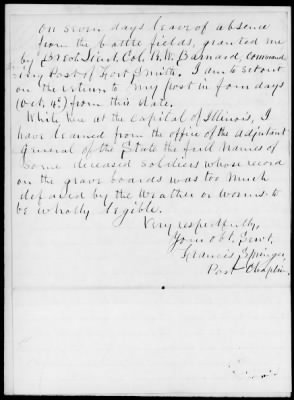 on seven days leave of absence
from the battle fields, granted me
by Lieut. Col. W. Barnard, Command
ing Post of Fort Smith. I am to set out
on the return to my post in four days
(Oct. 4th) from this date.
While here at the Capital of Illinois, I
have learned from the office of the adjutant
General of the State the full names of
some deceased soldiers whose record
on the grave boards was too much
defaced by the weather or worms to
be wholly legible.
Very respectfully,
Your obt. Servt.
Francis Springer,
Post Chaplin.